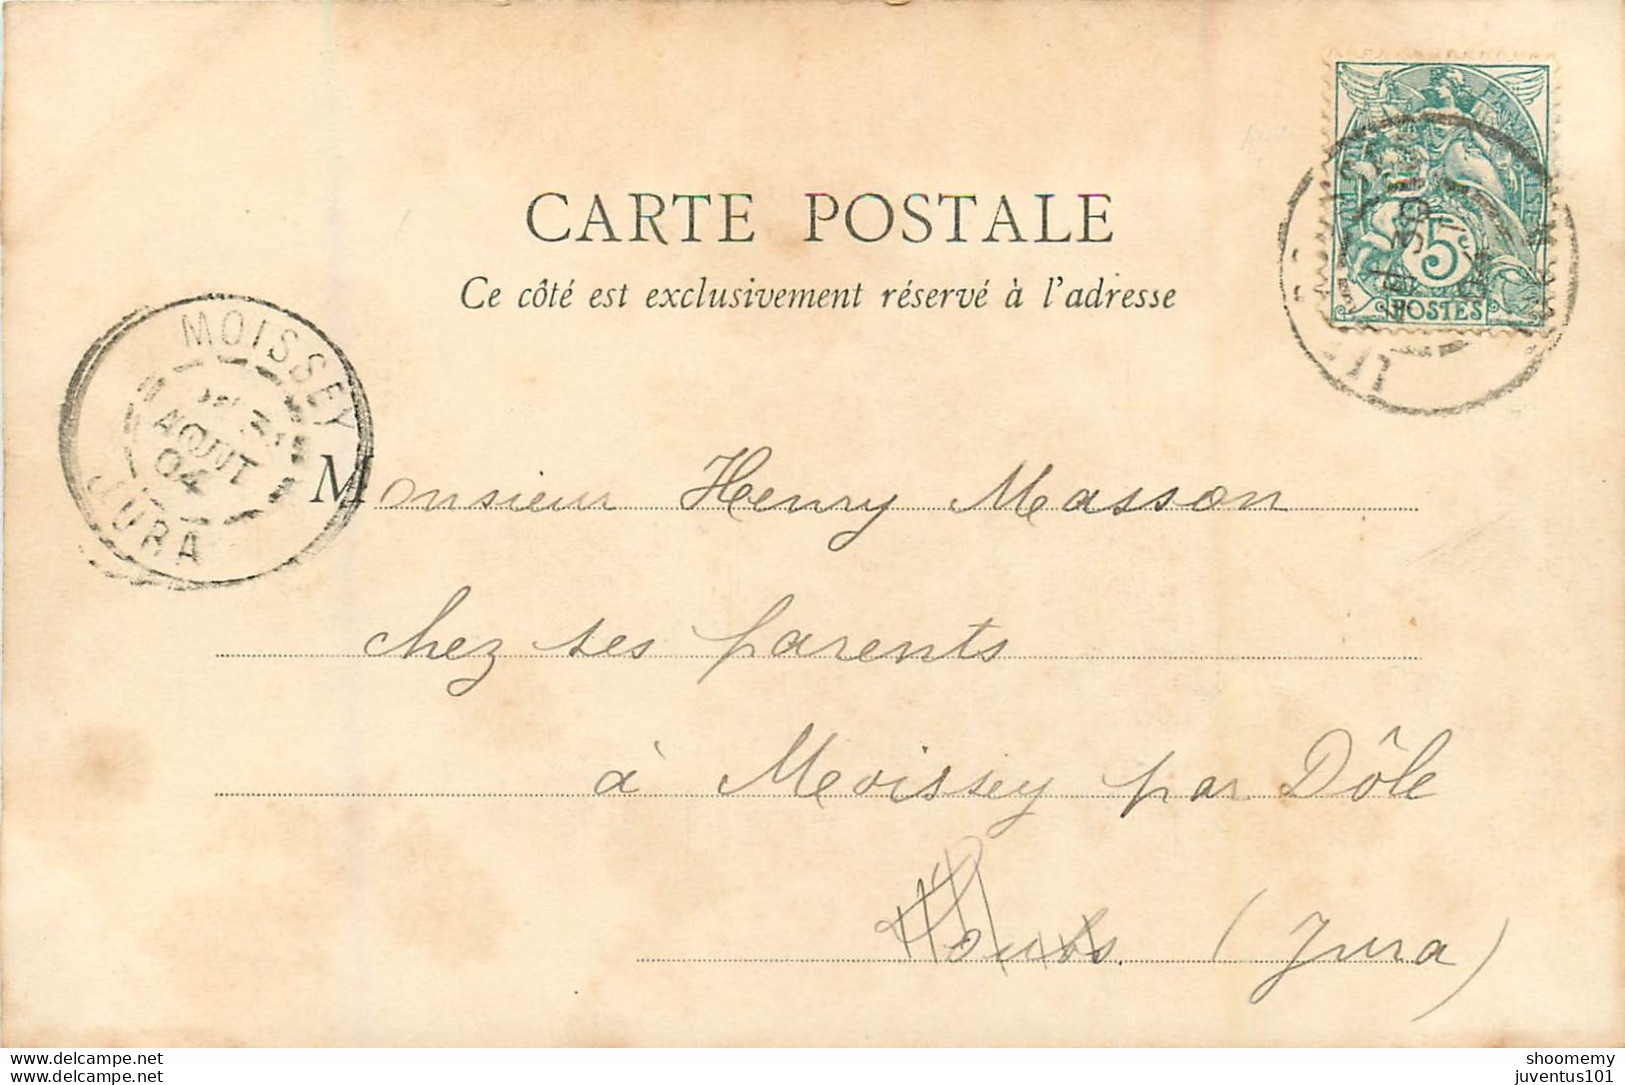 CARTE POSTALE
Ce côté est exclusivement réservé à l'adresse
5c
POSTES
MOISSEY
AOUT
04
JURA
Monsieur Henry Masson
chez ses parents
à Moissey par Dôle
Doubs. (Jura)
https://www.delcampe.net
juventus101
shoomemy
juventus101